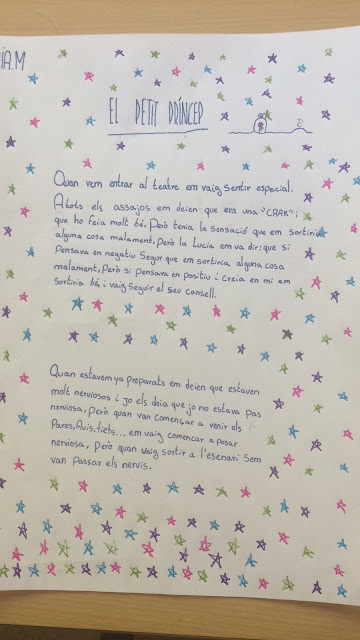 IA.M
EL PETIT PRÍNCEP
Quan vem entrar al teatre em vaig sentir especial.
A tots els assajos em deien que era una "CRAK";
que ho feia molt bé, Però tenia la sensació que em sortiria
alguna cosa malament, Però la Lucía em va dir: que si
Pensava en negatiu Segur que em sortiria alguna cosa
malament, Però si pensava en positiu i creia en mi em
sortiria bé, i vaig seguir el seu consell.
Quan estavem ya preparats em deien que estaven
molt nerviosos i jo els deia que jo no estava pas
nerviosa, Però quan van començar a venir els
Pares, Avis, tiets... em vaig comencar a posar
nerviosa, Però quan vaig sortir a l'esenari sem
van Passar els nervis.